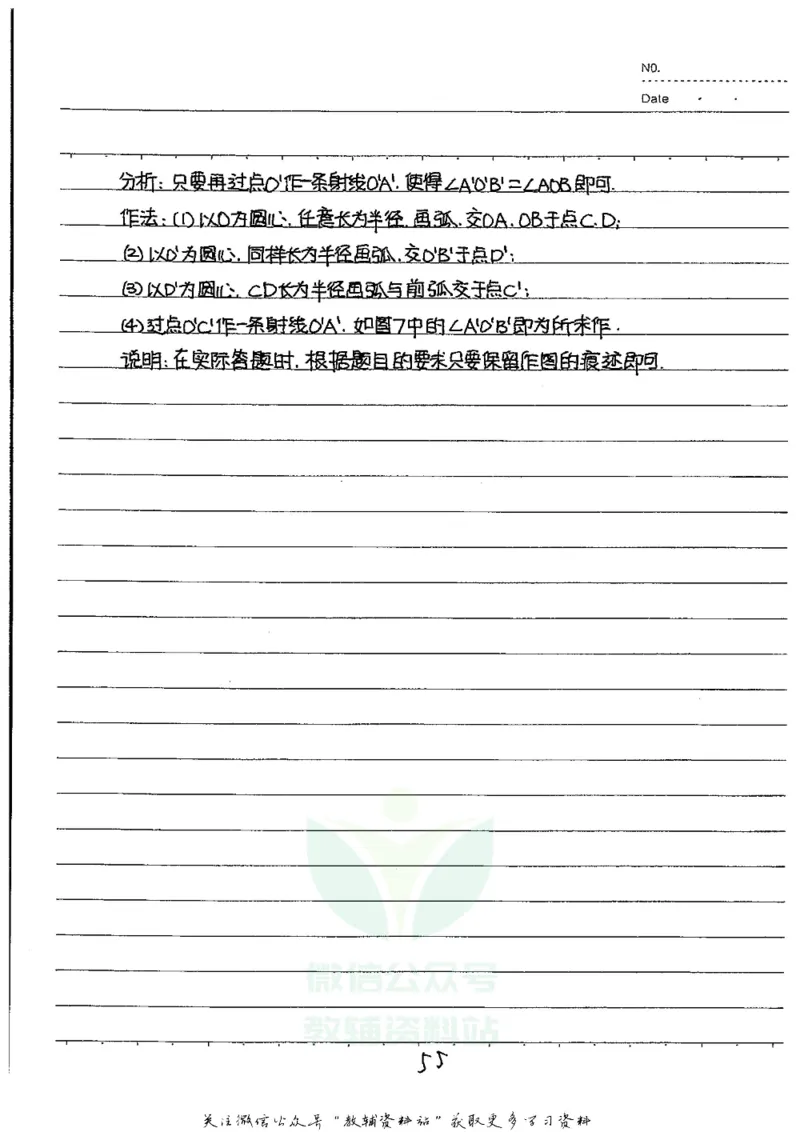 NO.
Date
分析:只要再过点O'作一条射线O'A',使得∠A'O'B'=∠AOB即可.
作法:(1)以O为圆心,任意长为半径,画弧,交OA,OB于点C,D;
(2)以O'为圆心,同样长为半径画弧,交O'B'于点D';
(3)以D'为圆心,CD长为半径画弧与前弧交于点C';
(4)过点O'C'作一条射线O'A',如图7中的∠A'O'B'即为所求作.
说明:在实际答题时,根据题目的要求只要保留作图的痕迹即可.
微信公众号
教辅资料站
55
关注微信公众号"教辅资料站"获取更多学习资料